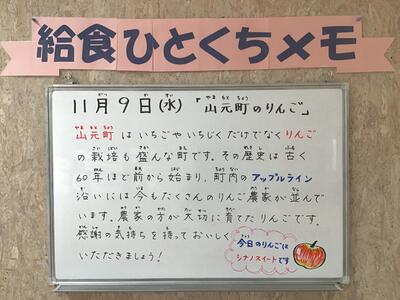 給食ひとくちメモ
11月9日(水) 「山元町のりんご」
山元町はいちごやいちじくだけでなくりんご
の栽培も盛んな町です。その歴史は古く
60年ほど前から始まり、町内のアップルライン
沿いには今もたくさんのりんご農家が並んで
います。農家の方が大切に育てたりんごです。
感謝の気持ちを持っておいしく
いただきましょう!
今日のりんごは
シナノスイートです